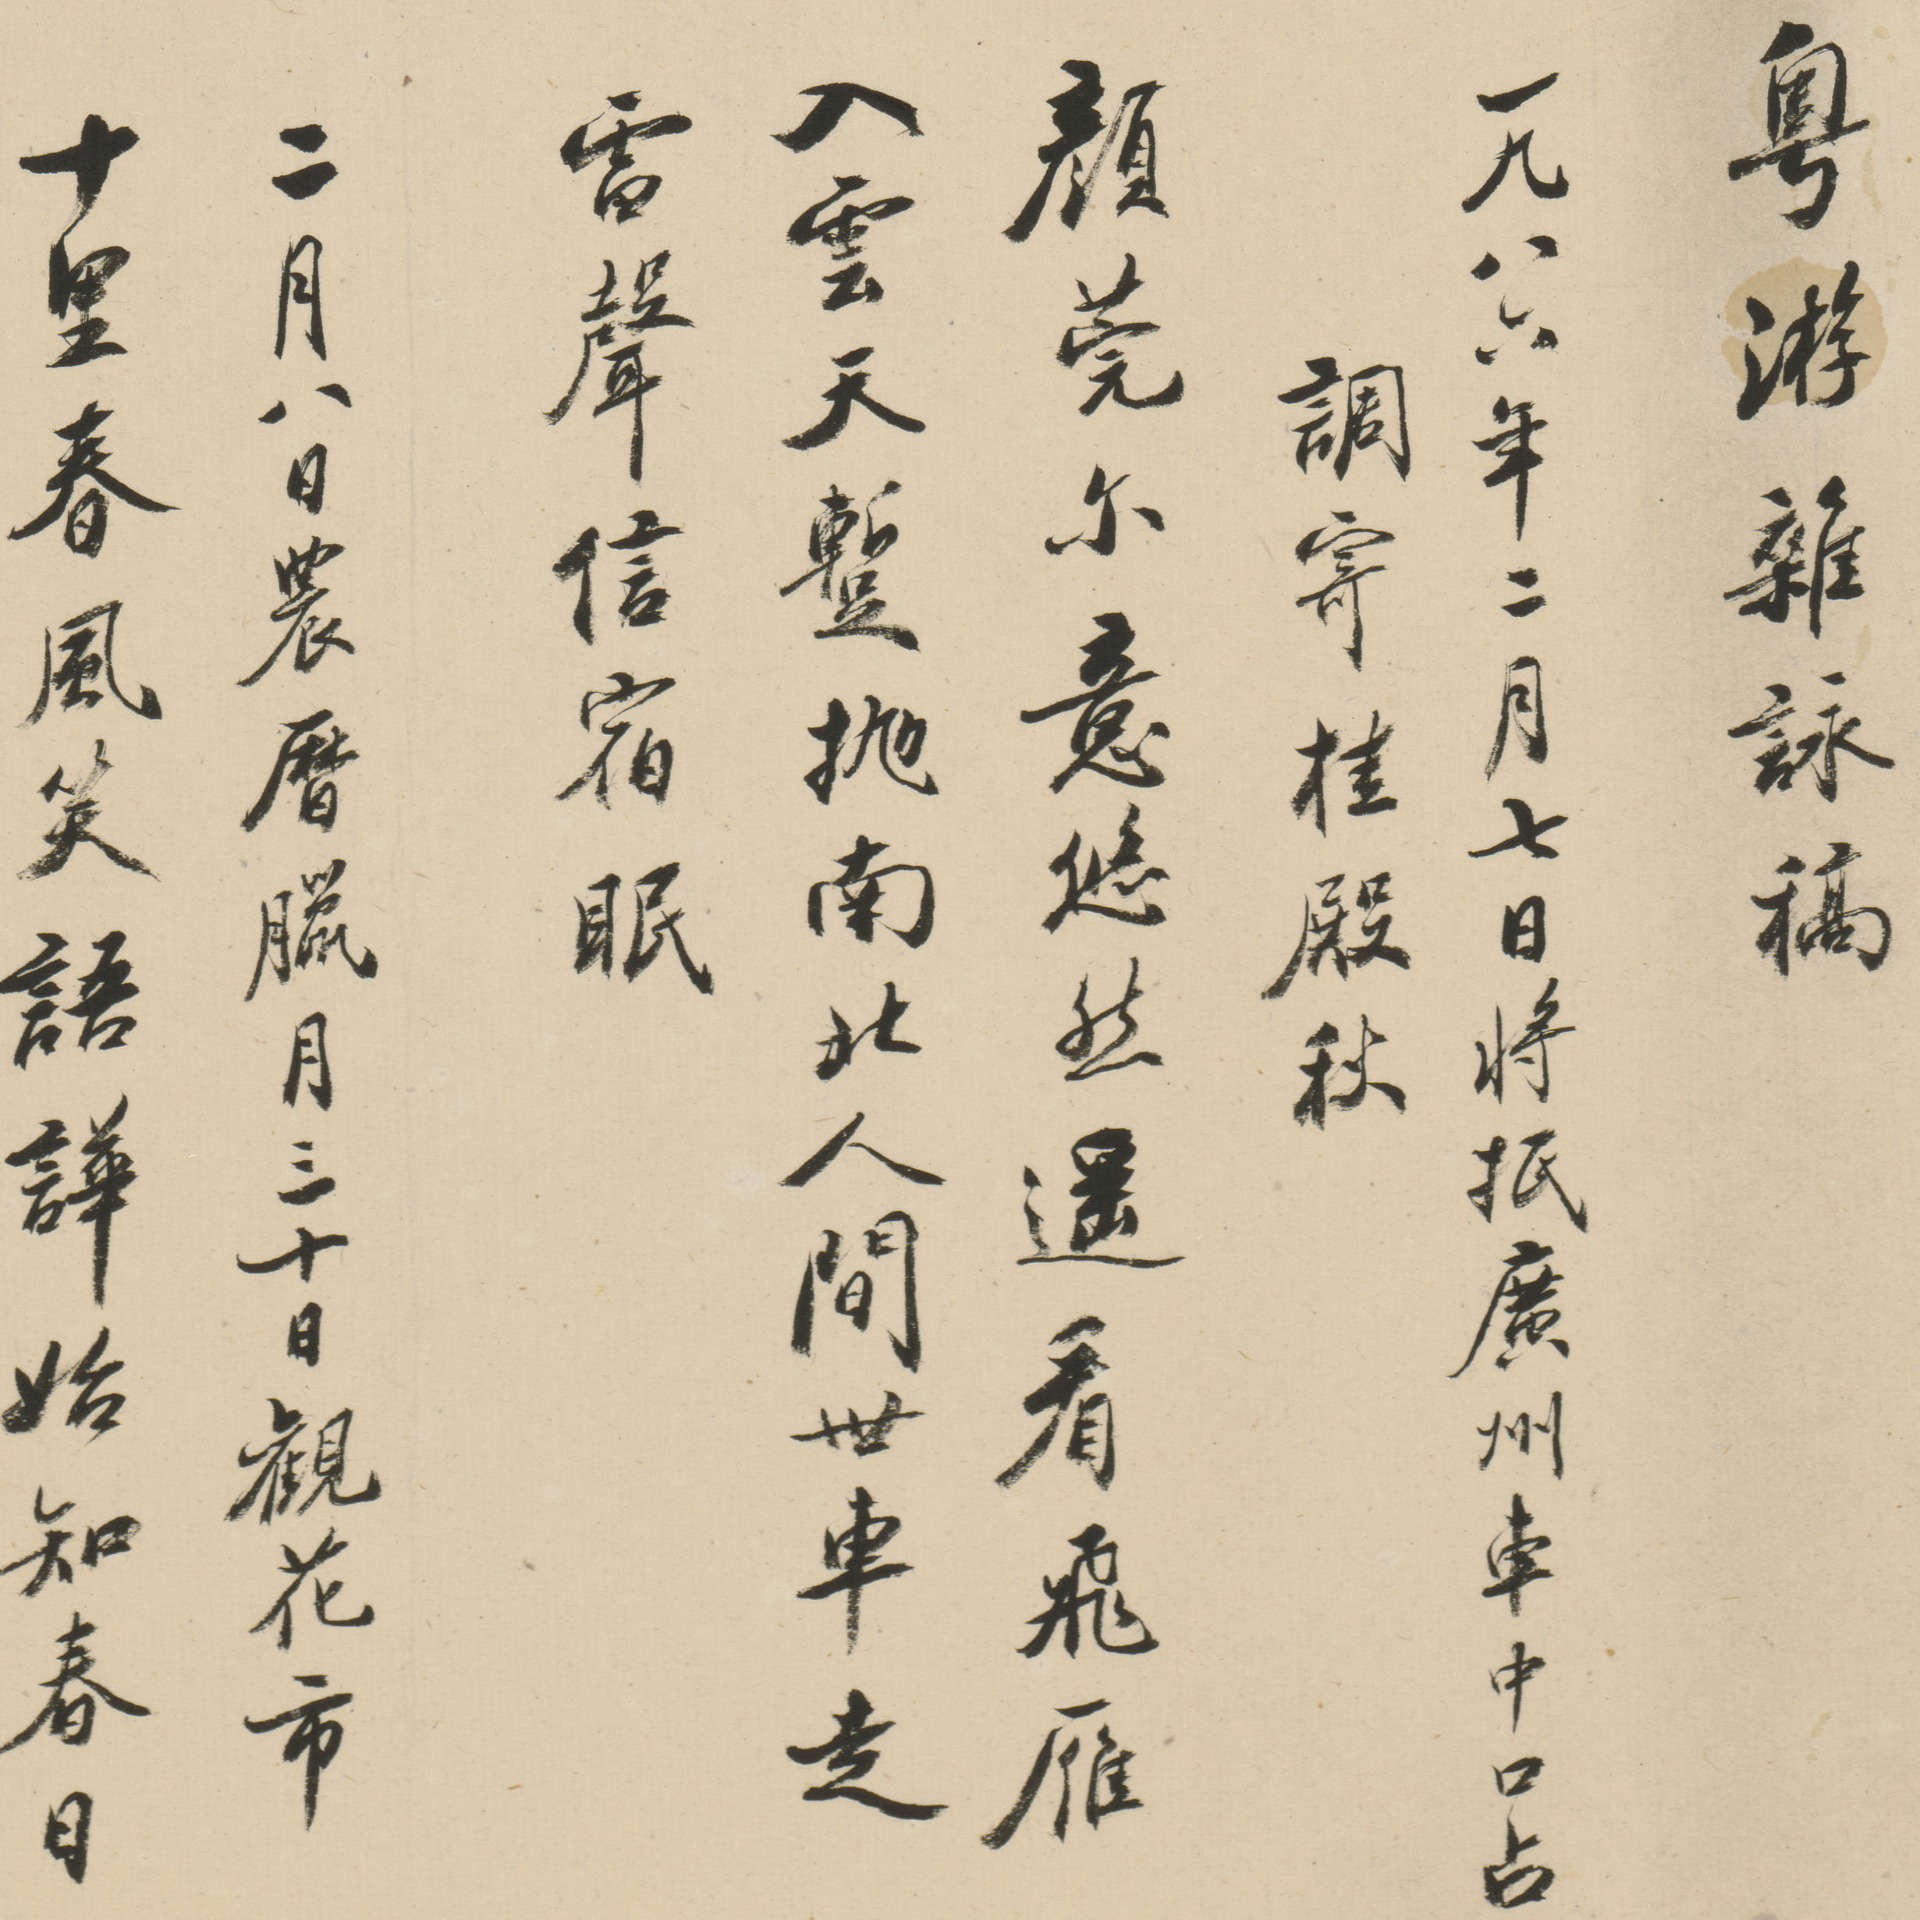 粤游雜詠稿
一九八六年二月七日將抵廣州車中口占
調寄桂殿秋
顏莞尔意悠然遥看飛雁
入雲天蹔抛南北人間世車走
雷聲信宿眠
二月八日農曆臘月三十日觀花市
十里春風笑語譁始知春日